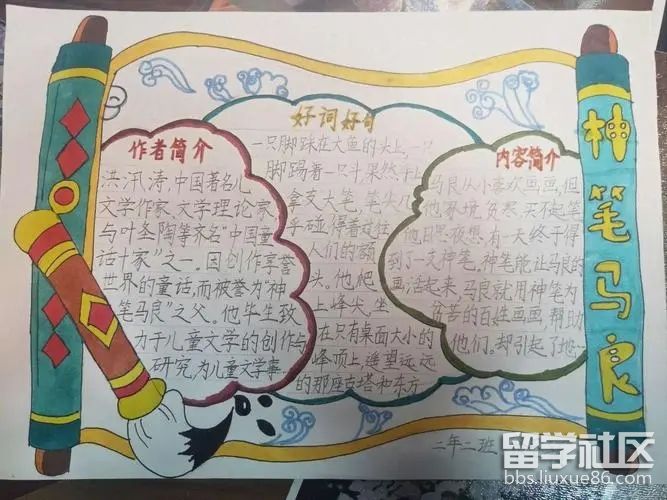 神笔马良
作者简介
洪汛涛,中国著名儿
文学作家,文学理论家,
与叶圣陶等齐名"中国童
话十家"之一。因创作享誉
世界的童话,而被誉为"神
笔马良"之父。他毕生致
力于儿童文学的创作与
研究,为儿童文学事
好词好句
一只脚踩在大鱼的头上,一只
脚踢着一只
拿支大笔,笔头几
乎碰得着过往
人们的额
头。他爬
上峰尖,坐
在只有桌面大小的
峰顶上遥望远远
的那座古塔和东方
内容简介
马良从小喜欢画画,但
他家境贫寒买不起笔
他日思夜想,有一天终于得
到了一支神笔。神笔能让马良的
画活起来,马良就用神笔为
贫苦的百姓画画,帮助
他们。却引起了地
二年二班
留学社区
bbs.liuxue86.com